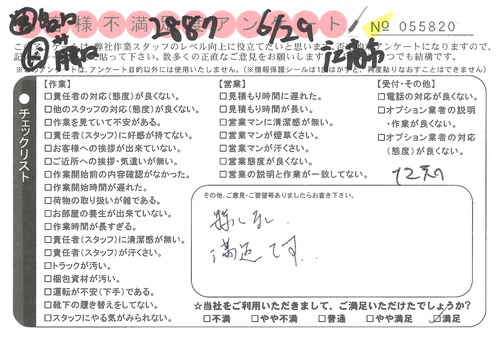 様不満足度アンケート
2887 6/29
№ 055820
このアンケートは、弊社作業スタッフのレベル向上に役立てたいと思いま
貼って下さい。数多くの正直なご意見をお願いいたします。
アンケートは、アンケート目的以外には使用いたしません。(※情報保護シールは1度はがすと、再度貼りなおすことはできません)
チェックリスト
【作業】
□責任者の対応(態度)が良くない。
□他のスタッフの対応(態度)が良くない。
□作業を見ていて不安がある。
□責任者(スタッフ)に好感が持てない。
□お客様への挨拶が出来ていない。
□ご近所への挨拶・気遣いが無い。
□作業開始前の内容確認がなかった。
□作業開始時間が遅れた。
□荷物の取り扱いが雑である。
□お部屋の養生が出来ていない。
□作業時間が長すぎる。
□責任者(スタッフ)に清潔感が無い。
□責任者(スタッフ)が汗くさい。
□トラックが汚い。
□梱包資材が汚い。
□運転が不安(下手)である。
□靴下の履き替えをしてない。
□スタッフにやる気がみられない。
【営業】
□見積もり時間に遅れた。
□見積もり時間が長い。
□営業マンに清潔感が無い。
□営業マンが煙草くさい。
□営業マンが汗くさい。
□営業態度が良くない。
□営業の説明と作業が一致してない。
【受付・その他】
□電話の対応が良くない。
□オプション業者の説明
・作業が良くない。
□オプション業者の対応
(態度)が良くない。
その他、ご意見・ご要望等ありましたらお書き下さい。
特になし。
満足です。
☆当社をご利用いただきまして、ご満足いただけたでしょうか?
□不満 □やや不満 □普通 □やや満足 ☑満足